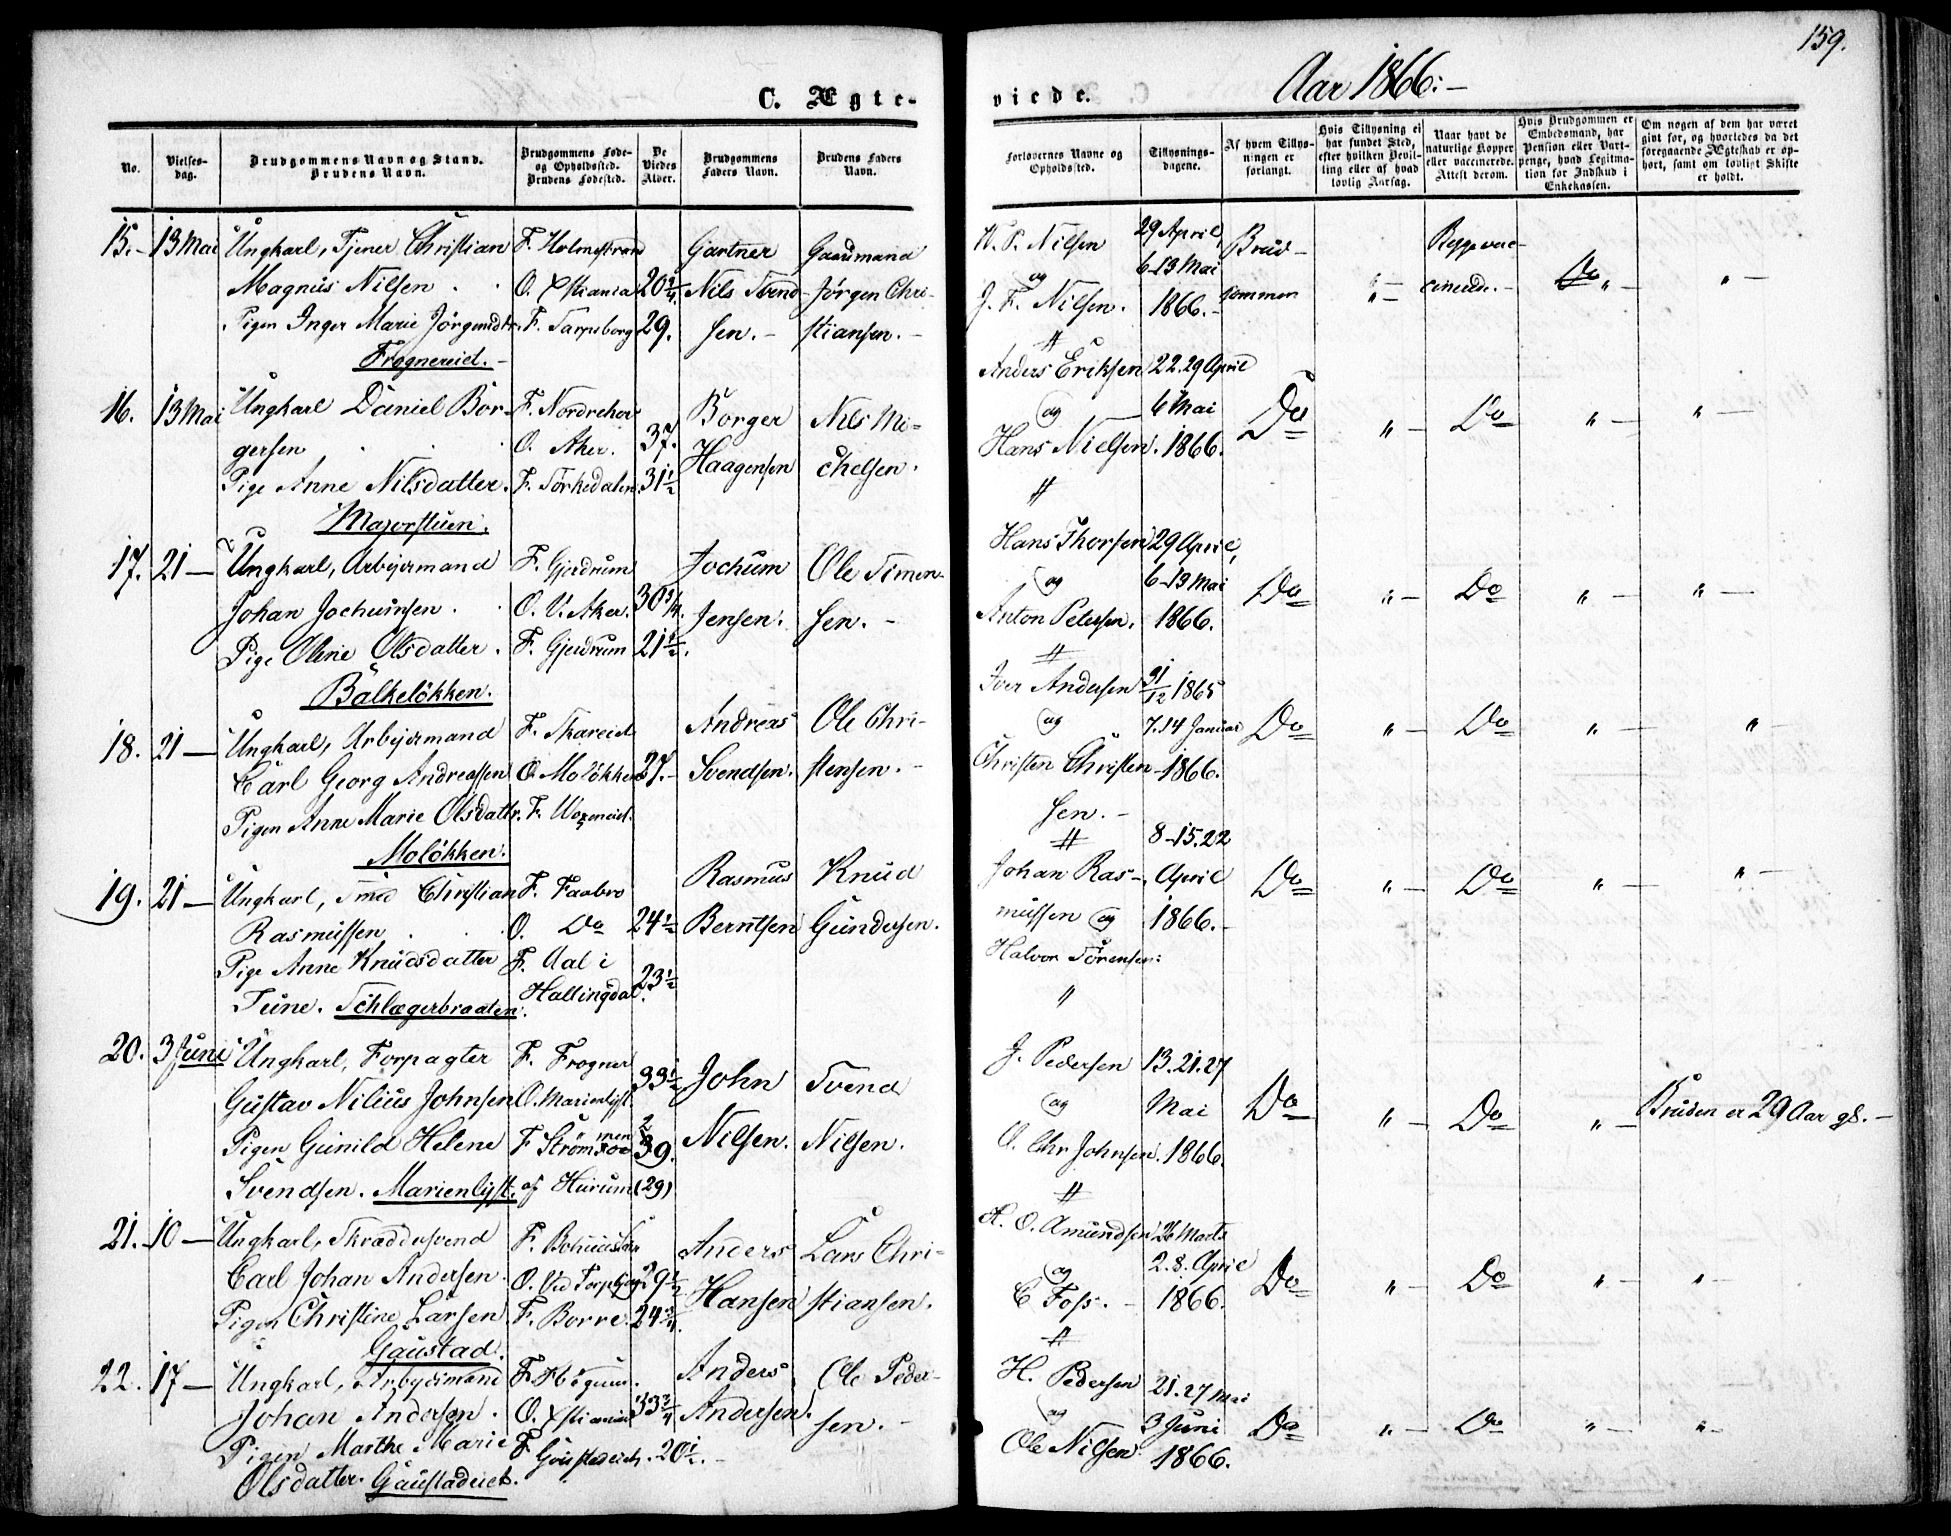 159.
C. Ægte-
viede.
Aar 1866.-
No.
Vielses-
dag.
Brudgommens Navn og Stand.
Brudens Navn.
Brudgommens Føde-
og Opholdssted.
Brudens Fødested.
De
Viedes
Alder.
Brudgommens
Faders Navn.
Brudens Faders
Navn.
Forlovernes Navne og
Opholdssted.
Tillysnings-
dagene.
Af hvem Tillys-
ningen er
forlangt.
Hvis Tillysning ei
har fundet Sted,
efter hvilken Bevil-
ling eller af hvad
lovlig Aarsag.
Naar havt de
naturlige Kopper
eller vaccinerede.
Attest derom.
Hvis Brudgommen er
Embedsmand, har
Pension eller Vart-
penge, hvad Legitma-
tion for Indskud i
Enkekassen.
Om nogen af dem har været
givt før, og hvorledes da det
foregaaende Ægteskab er op-
hørt, samt om lovligt Skifte
er holdt.
15.- 13 Mai Ungkarl, Tjener Christian F. Holmestrand Gartner Gaardmand
Magnus Nilsen . . O. Xstiania 20 3/4 Nils Svend- Jørgen Chri-
Pigen Inger Marie Jörgensdtr. F. Sarpsborg 29. sen.- stiansen.-
Frognereid.-
N. P. Nilsen 29 April, Brud- Begge vac-
og 6-13 Mai
J. F. Nilsen. 1866.- gommen " - cinerede.- Do " - " -
16. 13 Mai Ungkarl Daniel Bör- F. Norderhov Borger Nils Mi-
gersen . . O. Aker. 37. Haagensen chelsen.
Pige Anne Nilsdatter. F. Sörkedalen. 31 1/2
Majorstuen.
Anders Eriksen 22.29 April
og 6 Mai Do " - Do " - " -
Hans Nielsen. 1866.
17. 21 - Ungkarl, Arbejdsmand F. Gjerdrum Jochum Ole Simen-
Johan Jochumsen . . O. V. Aker. 30 3/4 Jensen. sen. -
Pige Oline Olsdatter. F. Gjerdrum 21 1/2.
Balkelökken.
Hans Thorsen 29 April,
og 6-13 Mai Do " - Do " - " -
Anton Petersen. 1866.
18. 21 - Ungkarl, Arbejdsmand F. Skareid Andreas Ole Chri-
Carl Georg Andreassen O. Molökken 27.- Svendsen. stensen. -
Pigen Anne Marie Olsdattr. F. Woxeneid.
Molökken.
Iver Andersen 31/12 1865
og 7.14 Januar Do " - Do " - " -
Christen Christen- 1866.
sen.-
19. 21 - Ungkarl, Smed Christian F. Faabro Rasmus Knud
Rasmussen . . O. Do 24 1/2 Berntsen Gundersen.
Pige Anne Knudsdatter F. Aal i
Teine. Schlægerbraaten. Hallingdal. 23 1/2
8-15.22
Johan Ras- April Do " - Do " - " -
mussen og 1866.-
Halvor Sörensen.
20. 3 Juni Ungkarl, Forpagter F. Frogner John Svend
Gustav Nilius Johnsen O. Marienlyst 33 1/2 Nilsen. Nilsen.
Pigen Gunild Helene F. Strömsoe 39.
Svendsen. Marienlyst. af Hurum (29)
J. Pedersen 13.21.27
og Mai Do " - Do " - Bruden er 29 Aar gl. -
O. Chr Johnsen. 1866.
21. 10 - Ungkarl, Skræddersvend F. Bohuslän Anders Lars Chri-
Carl Johan Andersen. O. 29 1/2 Hansen stiansen.
Pigen Christine Larsen F. Borre. 24 3/4.
Gaustad.
H. O. Amundsen 26 Marts
og 2.8. April Do " - Do " - " -
C Foss.- 1866.
22. 17 - Ungkarl, Arbejdsmand F. Anders Ole Peder-
Johan Andersen. O. Xstiania 33 3/4 Andersen. sen.-
Pigen Marthe Marie F. Gaustadeiet. 20 1/2.-
Olsdatter. Gaustadeiet.
H. Pedersen 21.27 Mai
og 3 Juni Do " - Do " - " -
Ole Nilsen. 1866.